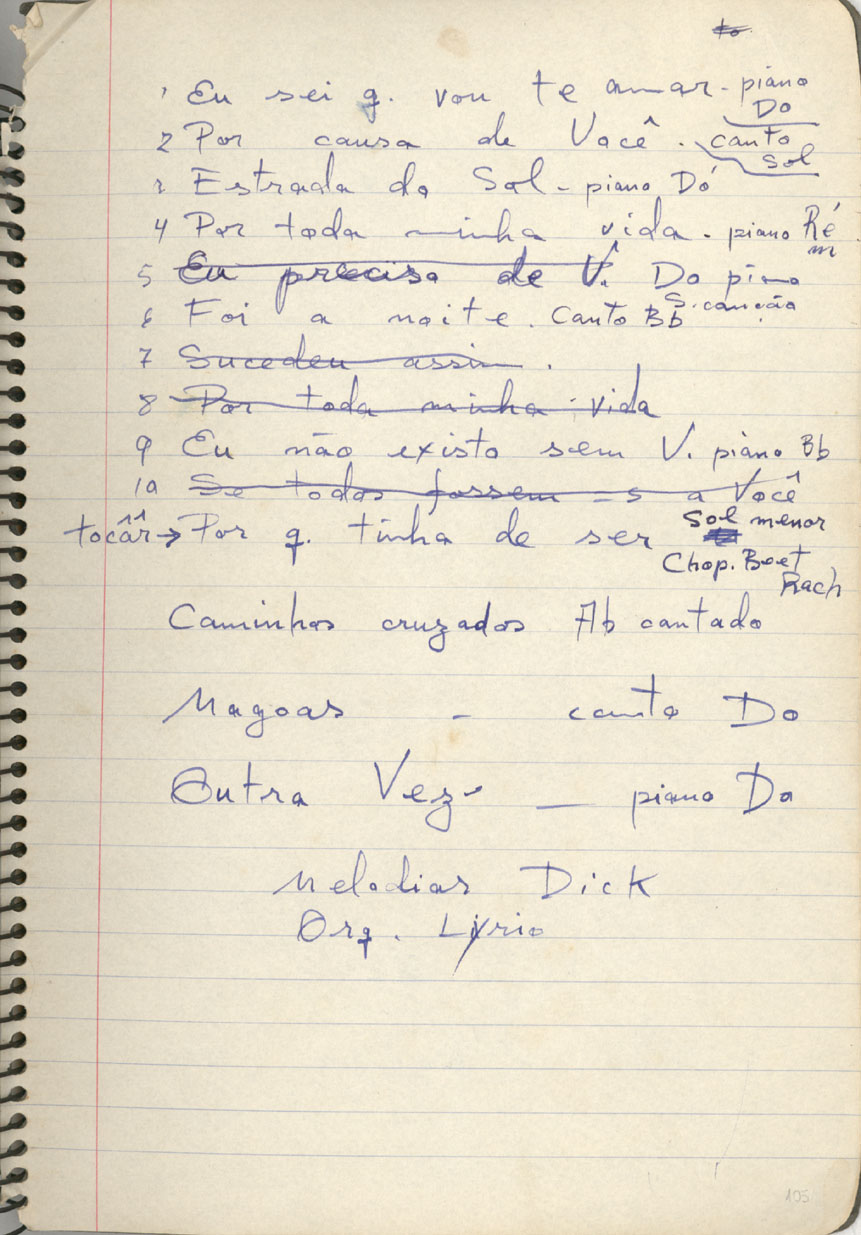 1 Eu sei q. vou te amar - piano
Do
2 Por causa de Você - canto
Sol
3 Estrada do Sol - piano Dó
4 Por toda minha vida - piano Ré
m
5 Eu preciso de V. Do piano
6 Foi a noite. Canto Bb S. canção
7 Sucedeu assim.
8 Por toda minha vida
9 Eu não existo sem V. piano Bb
10 Se todos fossem = s a Você
tocâr → Por q. tinha de ser Sol menor
Chop. Beet
Rach
Caminhos cruzados Ab cantado
Magoas - canto Do
Outra Vez - piano Do
Melodias Dick
Orq. Lyrio
105